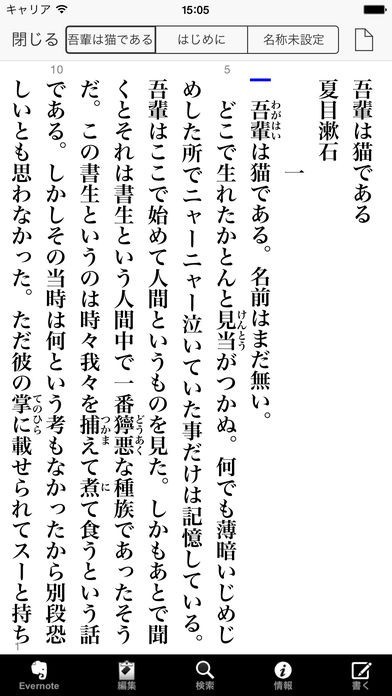 キャリア 15:05
閉じる 吾輩は猫である はじめに 名称未設定
10 5
吾輩は猫である
夏目漱石
一
吾輩は猫である。名前はまだ無い。
わがはい
どこで生れたかとんと見当がつかぬ。何でも薄暗いじめじ
けんとう
めした所でニャーニャー泣いていた事だけは記憶している。
吾輩はここで始めて人間というものを見た。しかもあとで聞
くとそれは書生という人間中で一番獰悪な種族であったそう
どうあく
だ。この書生というのは時々我々を捕えて煮て食うという話
つかま
に
である。しかしその当時は何という考もなかったから別段恐
しいとも思わなかった。ただ彼の掌に載せられてスーと持ち
てのひら
1
Evernote 編集 検索 情報 書く